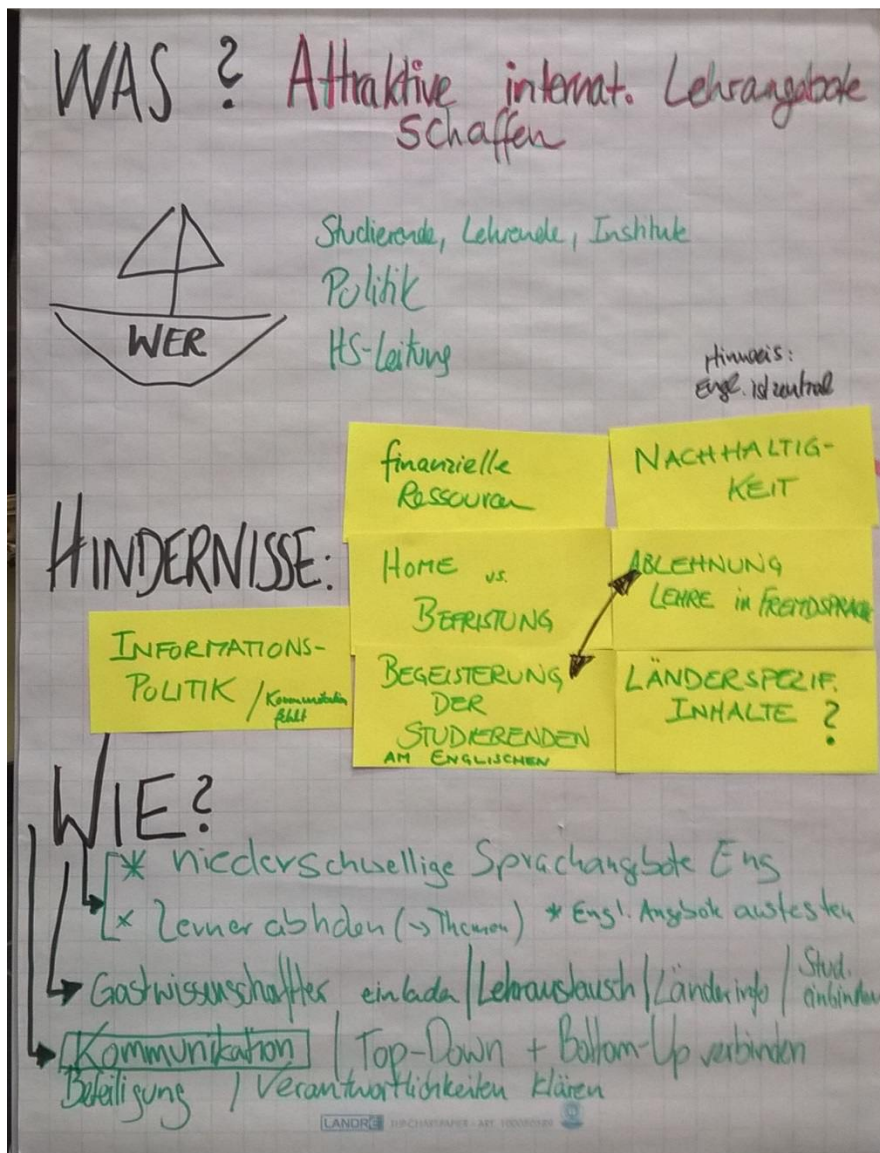 WAS? Attraktive internat. Lehrangebote
schaffen
Studierende, Lehrende, Institute
Politik
WER
HS-Leitung
Hinweis:
Engl. ist zentral
finanzielle
Ressourcen
NACHHALTIG-
KEIT
HINDERNISSE:
HOME vs.
BEFRISTUNG
ABLEHNUNG
LEHRE in FREMDSPRACHE
INFORMATIONS-
POLITIK / Kommunikation
fehlt
BEGEISTERUNG
DER
STUDIERENDEN
AM ENGLISCHEN
LÄNDERSPEZIF.
INHALTE ?
WIE?
* niederschwellige Sprachangebote Eng
* Lerner abholen (-> Themen) * Engl. Angebote austesten
Gastwissenschaftler einladen / Lehraustausch / Länderinfo / Stud.
einbinden
Kommunikation / Top-Down + Bottom-Up verbinden
Beteiligung / Verantwortlichkeiten klären
LANDRÉ